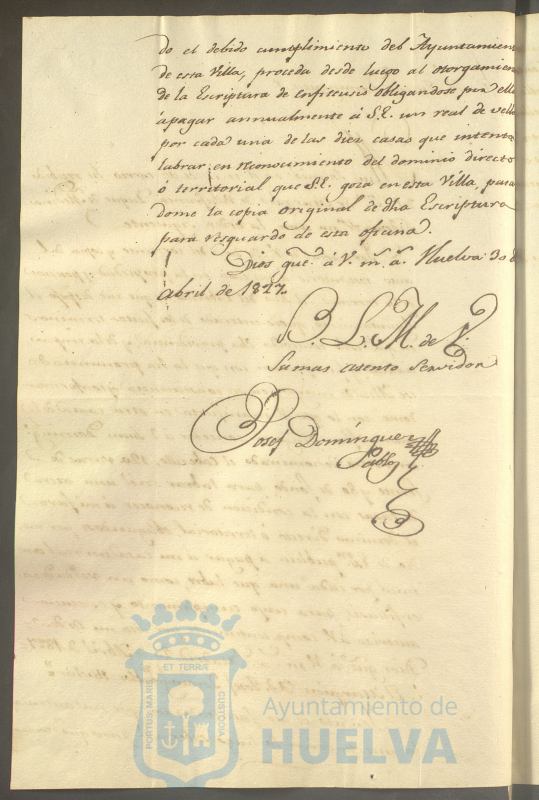 do el debido cumplimiento del Ayuntamien
de esta Villa, proceda desde luego al otorgamien
de la Escriptura de enfiteusis obligandose por ella
à pagar annualmente á S.E. un real de vello
por cada una de las diez casas que intenta
labrar, en reconocimiento del dominio directo
ó territorial que S.E. goza en esta Villa, pasan
dome la copia original de dha Escriptura
para resguardo de esta oficina.
Dios gue. á V. m.s a.s Huelva 30 d
Abril de 1827.
B. L. M. de V.
Su mas atento Servidor
Josef Dominguez
Pablos
PORTUS MARIS
ET TERRÆ
CUSTODIA
Ayuntamiento de
HUELVA